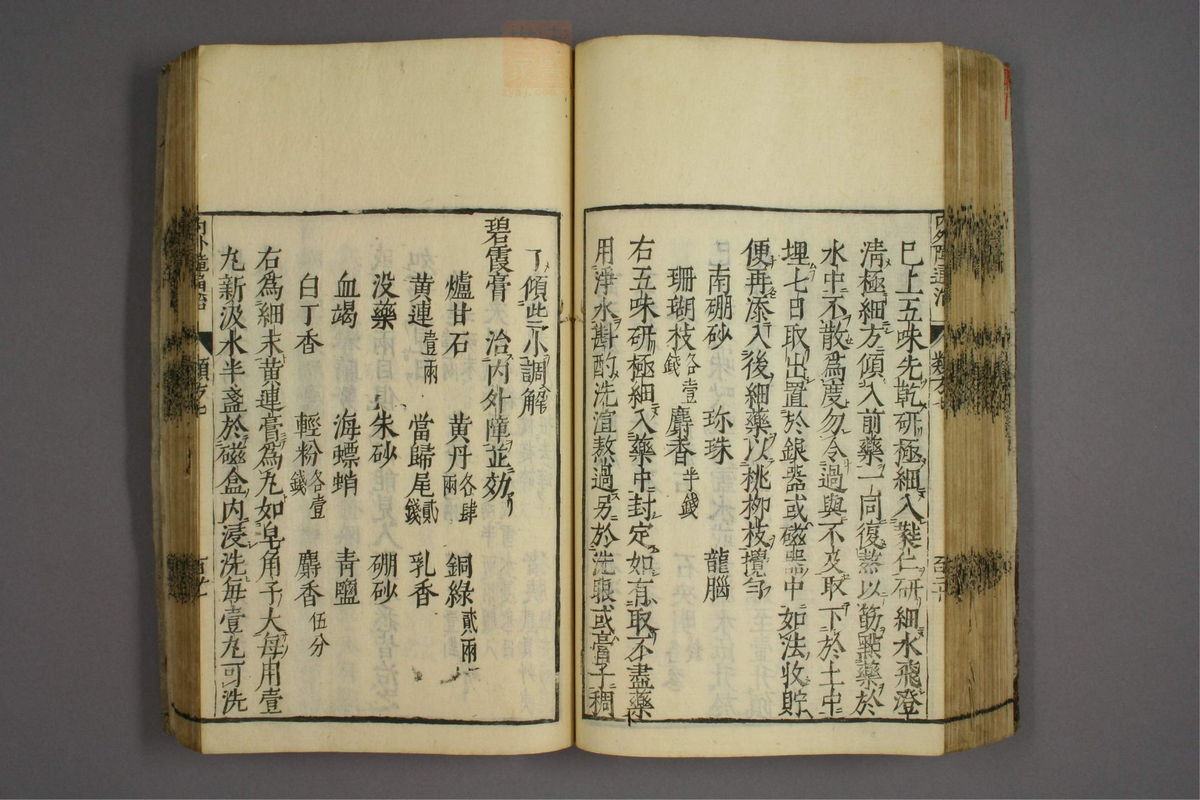 已上五味先乾研極細入蕤仁研細水飛澄
清極細方傾入前藥一同復蒸以筯點藥於
水中不散為度勿令過與不及取下於土中
埋七日取出置於銀器或磁器中如法收貯
便再添入後細藥以桃柳枝攪勻
南硼砂　珎珠　龍腦
珊瑚枝各壹錢　麝香半錢
右五味研極細入藥中封定如有取不盡藥
用淨水斟酌洗渲熬過另於洗眼或膏子稠
了傾此小調解
碧霞膏　治內外障並効
爐甘石　黃丹各肆兩　銅綠貳兩
黃連壹兩　當歸尾貳錢　乳香
没藥　朱砂　硼砂
血竭　海螵蛸　青鹽
白丁香　輕粉各壹錢　麝香伍分
右為細末黃連膏為丸如皂角子大每用壹
丸新汲水半盞於磁盒內浸洗每壹丸可洗